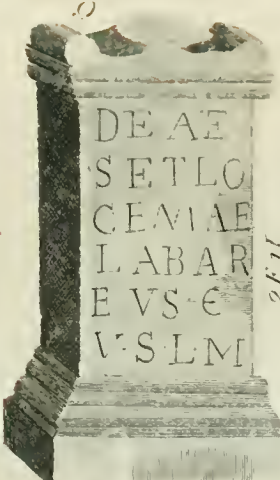 DEAE
SETLO
CENIAE
LABAR
EVS·E
V·S·L·M